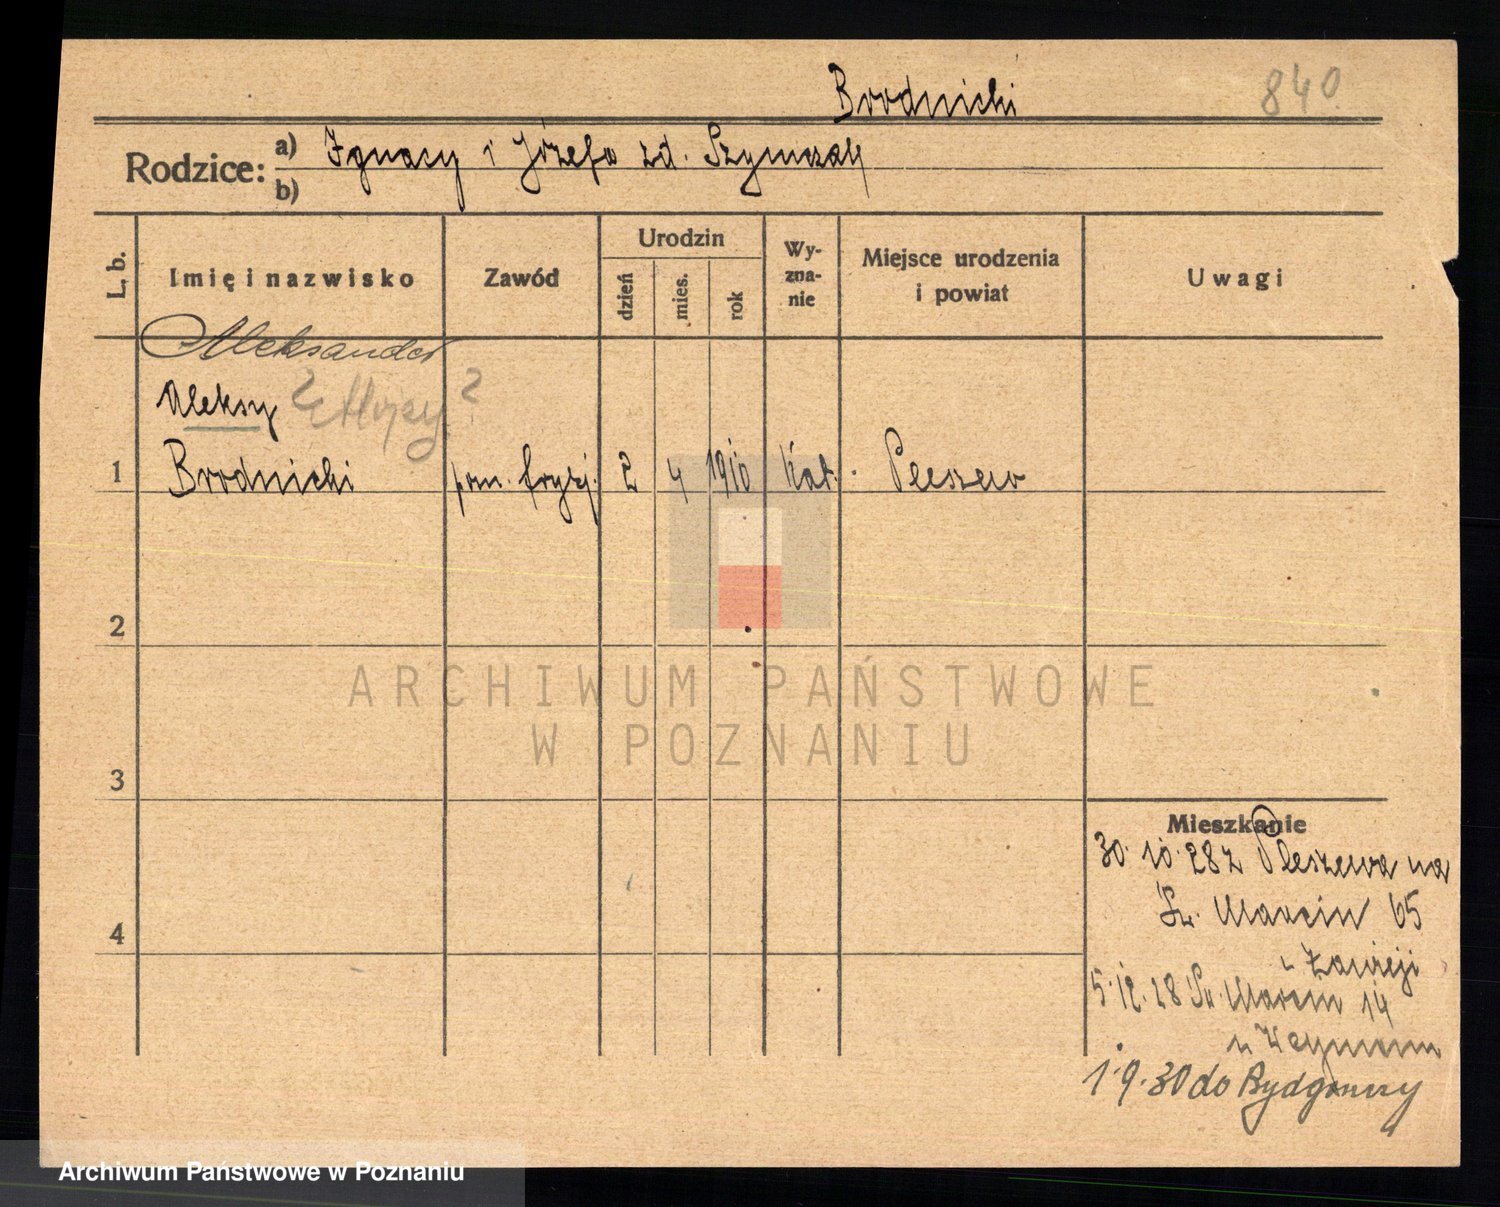 Brodnicki
840
Rodzice:
a) Ignacy i Józefa zd. Szymczak
b)
L. b.
Imię i nazwisko
Zawód
Urodzin
dzień
mies.
rok
Wy-
zna-
nie
Miejsce urodzenia
i powiat
Uwagi
Aleksander
Aleksy
1 Brodnicki pom. fryzj. 2 4 1910 Kat. Pleszew
2
3
4
ARCHIWUM PAŃSTWOWE
W POZNANIU
Mieszkanie
30.10.28 z Pleszewa na
Św. Marcin 65
5.12.28 Św. Marcin 14
1.9.30 do Bydgoszczy
Archiwum Państwowe w Poznaniu